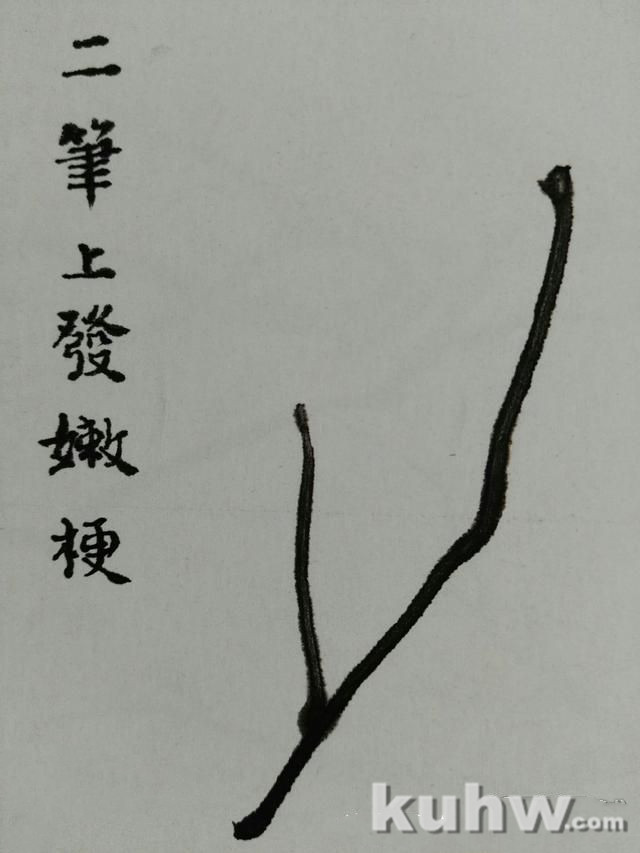 二筆上發嫩梗
kuhw.com